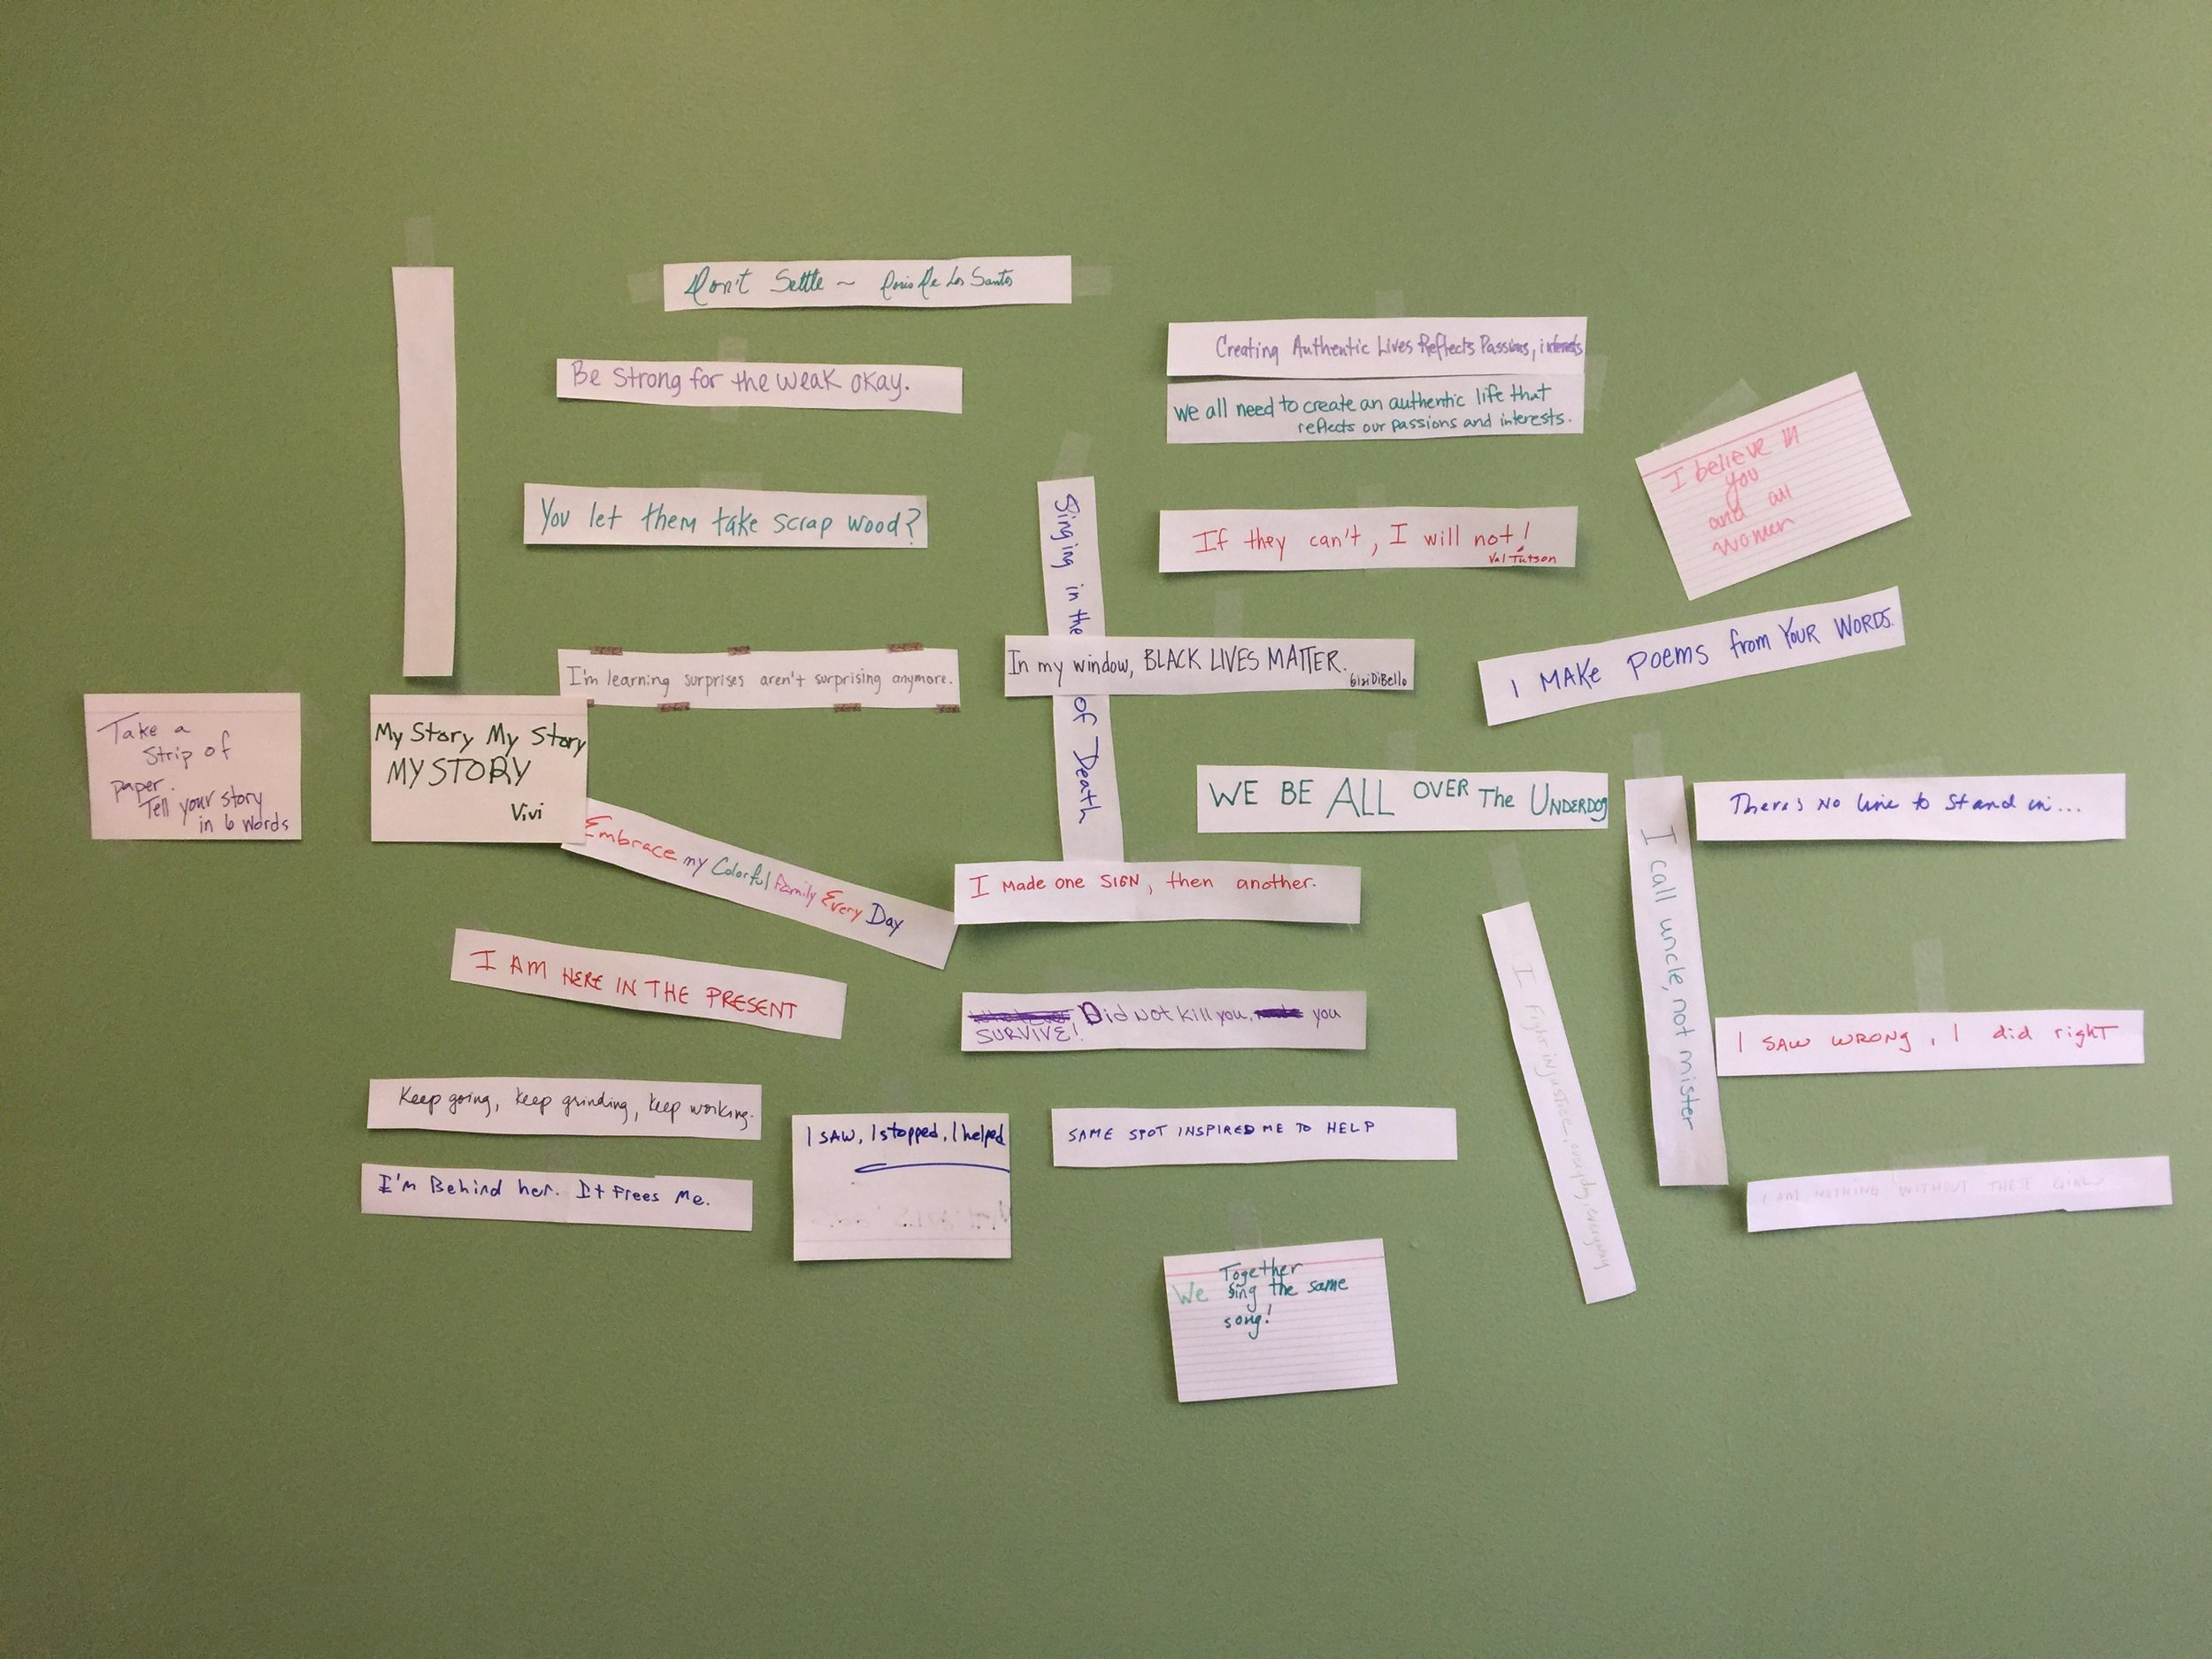 Don't Settle ~ Doris De Los Santos
Be Strong for the weak okay.
You let them take scrap wood?
I'm learning surprises aren't surprising anymore.
Take a
Strip of
paper.
Tell your story
in 6 words
My Story My Story
MY STORY
Vivi
Embrace my Colorful Family Every Day
I AM HERE IN THE PRESENT
Keep going, keep grinding, keep working.
I'm Behind her. It Frees Me.
I SAW, I stopped, I helped
Creating Authentic Lives Reflects Passions, interests
We all need to create an authentic life that
reflects our passions and interests.
If they can't, I will not!
Val Tutson
Singing in the
of Death
In my window, BLACK LIVES MATTER.
Gigi DiBello
WE BE ALL OVER The UNDERDOG
I Made one SIGN, then another.
Did Not Kill you, you
SURVIVE!
SAME SPOT INSPIRED ME TO HELP
We Together
sing the same
song!
I believe in
you
and all
women
I MAKE POEMS from YOUR WORDS.
There's No line to Stand in...
I call uncle, not mister
I SAW WRONG, I did right
I Fight injustice, everyday, everyway
I AM NOTHING WITHOUT THE GIRLS